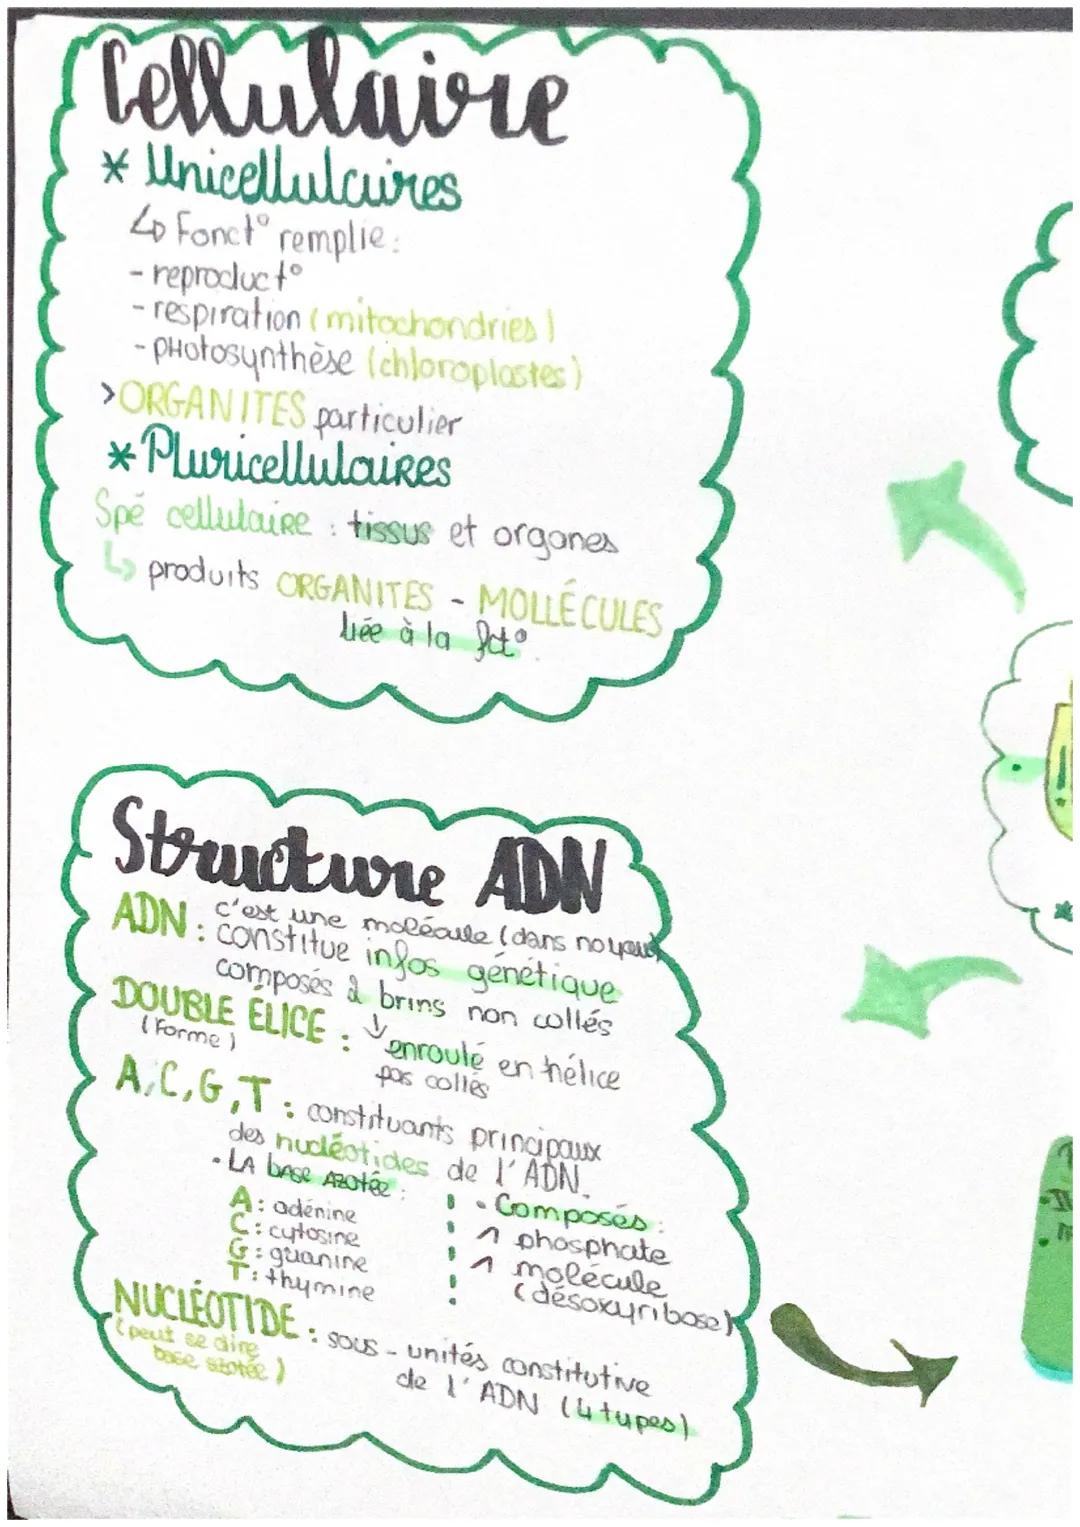 Cellulaire
* Unicellulaires
↳ Fonct° remplie :
- reproduct°
- respiration (mitochondries)
- PHotosynthèse (chloroplastes)
> ORGANITES particulier
* PluricellulaiREs
Spé cellulaiRE : tissus et organes
↳ produits ORGANITES - MOLLÉCULES
liée à la fct°.
Structure ADN
ADN : c'est une molécule (dans noyau)
constitue infos génétique
composés 2 brins non collés
DOUBLE ÉLICE : ↓ enroulé en hélice
(Forme) pas collés
A, C, G, T : constituants principaux
des nucléotides de l'ADN.
• LA base AZotée :
A : adénine
C : cytosine
G : guanine
T : thymine
• Composés :
1 phosphate
1 molécule
(désoxyribose)
NUCLÉOTIDE : sous-unités constitutive
(peut se dire
base azotée)
de l'ADN (4 types)